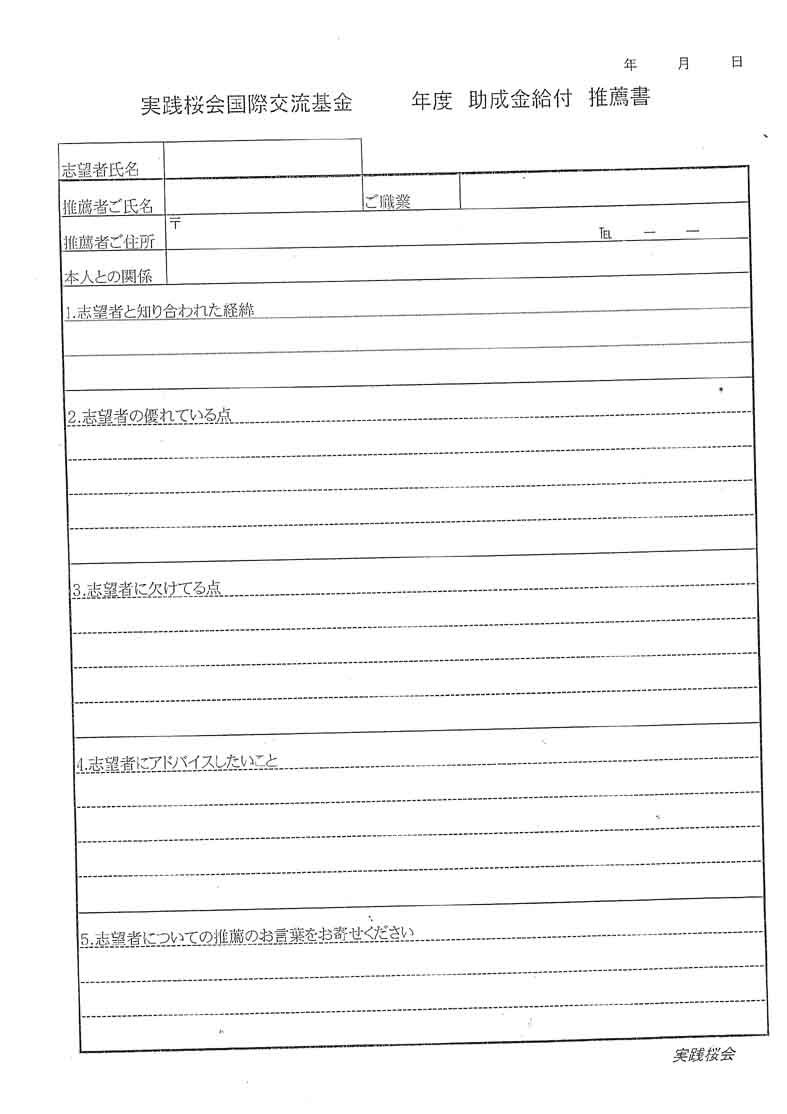 年 月 日
実践桜会国際交流基金 年度 助成金給付 推薦書
志望者氏名
推薦者ご氏名 ご職業
推薦者ご住所 〒 ℡ ― ―
本人との関係
1.志望者と知り合われた経緯
2.志望者の優れている点
3.志望者に欠けてる点
4.志望者にアドバイスしたいこと
5.志望者についての推薦のお言葉をお寄せください
実践桜会